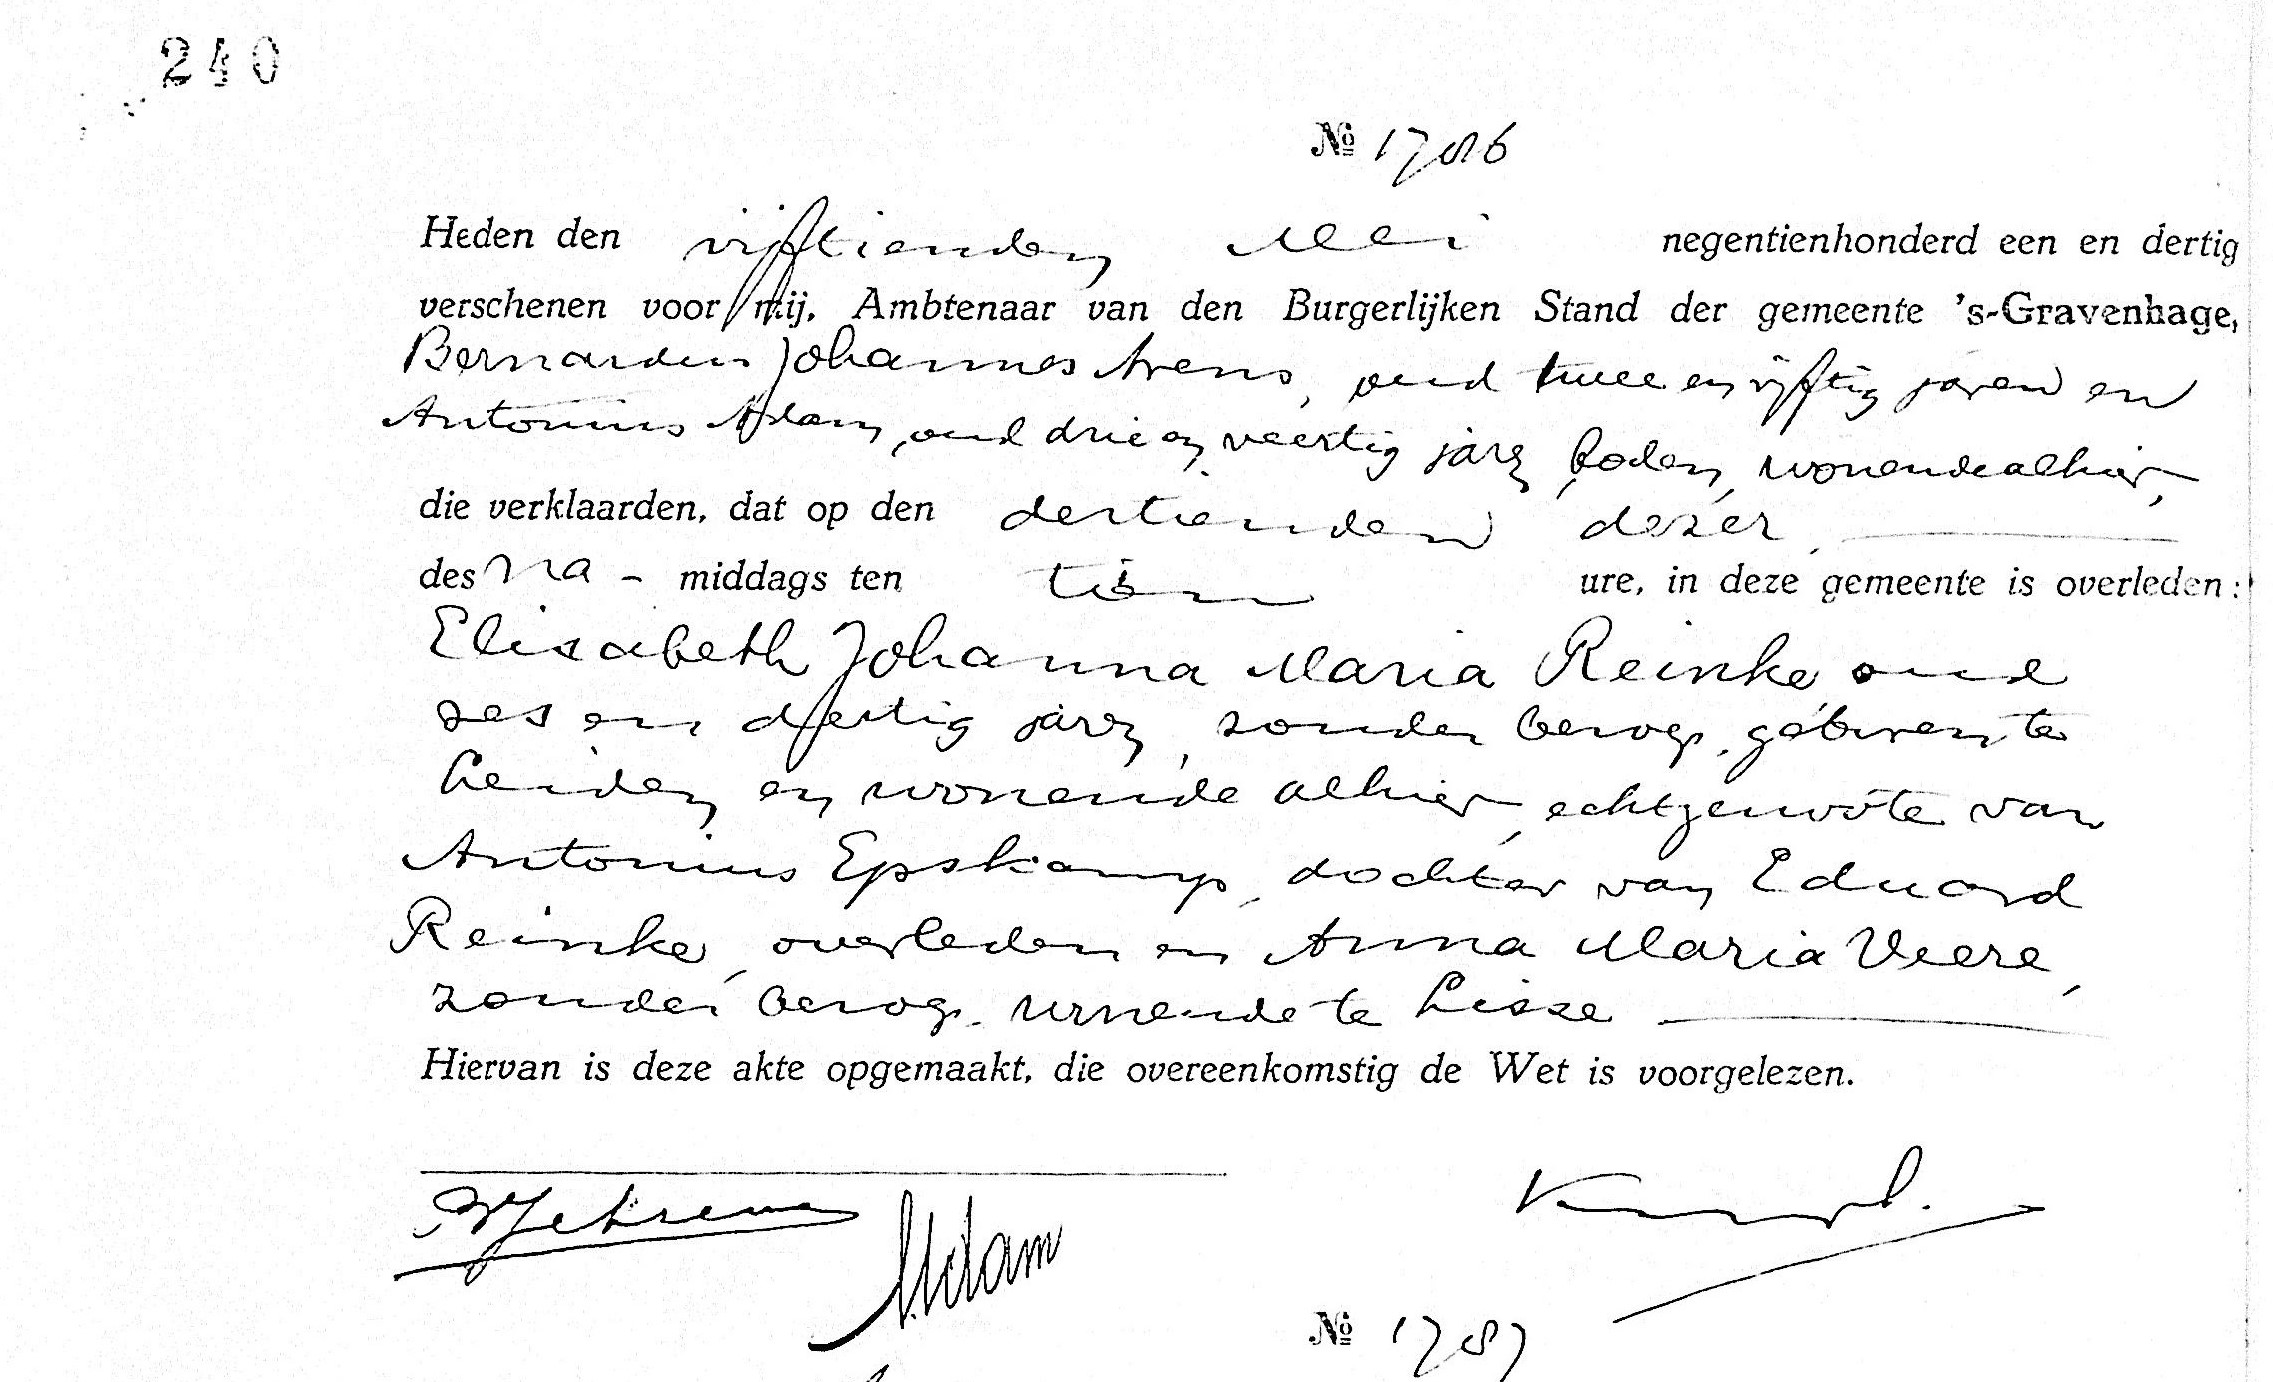 240
№ 1786
Heden den vijftienden Mei negentienhonderd een en dertig
verschenen voor mij, Ambtenaar van den Burgerlijken Stand der gemeente 's-Gravenhage,
Bernardus Johannes Arens, oud twee en vijftig jaren en
Antonius Adam, oud drie en veertig jaren, boden, wonende alhier,
die verklaarden, dat op den dertienden dezer,
des na - middags ten tien ure, in deze gemeente is overleden:
Elisabeth Johanna Maria Reinke, oud
zes en dertig jaren, zonder beroep, geboren te
Leiden en wonende alhier, echtgenoote van
Antonius Epskamp, dochter van Eduard
Reinke, overleden en Anna Maria Veere,
zonder beroep, wonende te Lisse
Hiervan is deze akte opgemaakt, die overeenkomstig de Wet is voorgelezen.
Adam
№ 1787